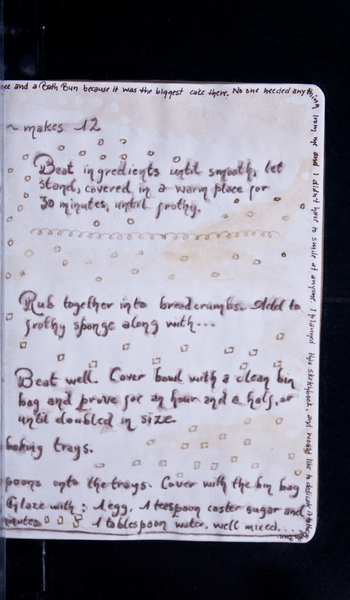 and a Bath Bun because it was the biggest cake there. No one needed anything from me and I didn't have to smile at anyone. I planned this sketchbook, and would like to dedicate it to the
~ makes 12
Beat ingredients until smooth, let
stand, covered, in a warm place for
30 minutes, until frothy.
Rub together into breadcrumbs. Add to
frothy sponge along with...
Beat well. Cover bowl with a clean bin
bag and prove for an hour and a half, or
until doubled in size.
baking trays.
poons onto the trays. Cover with the bin bag
Glaze with: 1 egg, 1 teespoon caster sugar and
nutes 1 tablespoon water, well mixed....